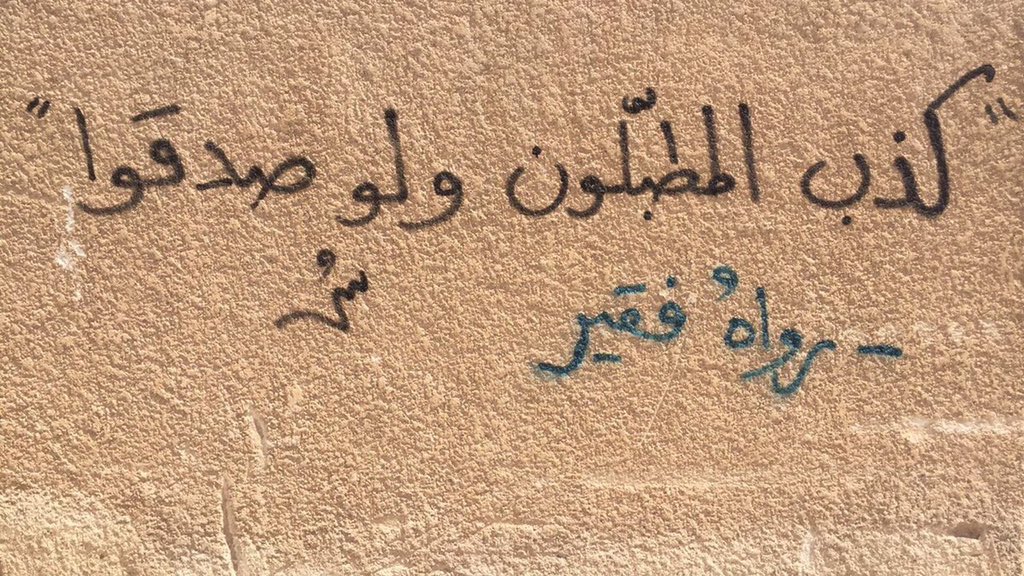 "كذب المطبّلون ولو صدقَوا"
- رواهُ فقير